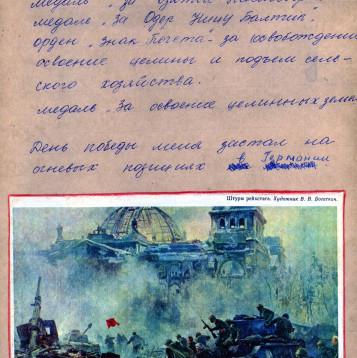 медаль „За
медаль „За Одер Нишу Балтик",
орден „Знак Почета" за освобождение
освоение целины и подъем сель-
ского хозяйства.
медаль „За освоение целинных земель
День победы меня застал на
огневых позициях в Германии
Штурм рейхстага. Художник В. В. Богаткин.